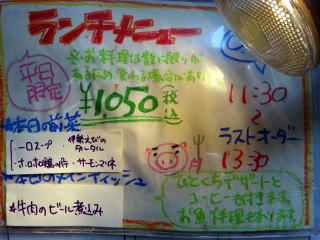 ランチメニュー
※お料理は数に限りが
あるため、変わる場合があり
平日
限定
¥1050(税込)
11:30
〜
ラストオーダー
13:30
★本日の前菜
一口スープ 伊勢えびの
タータル
ホロホロ鶏の サーモンマリネ
★本日のメインディッシュ
★牛肉のビール煮込み
ひとくちデザートと
コーヒー付きます。
お魚料理もあります。